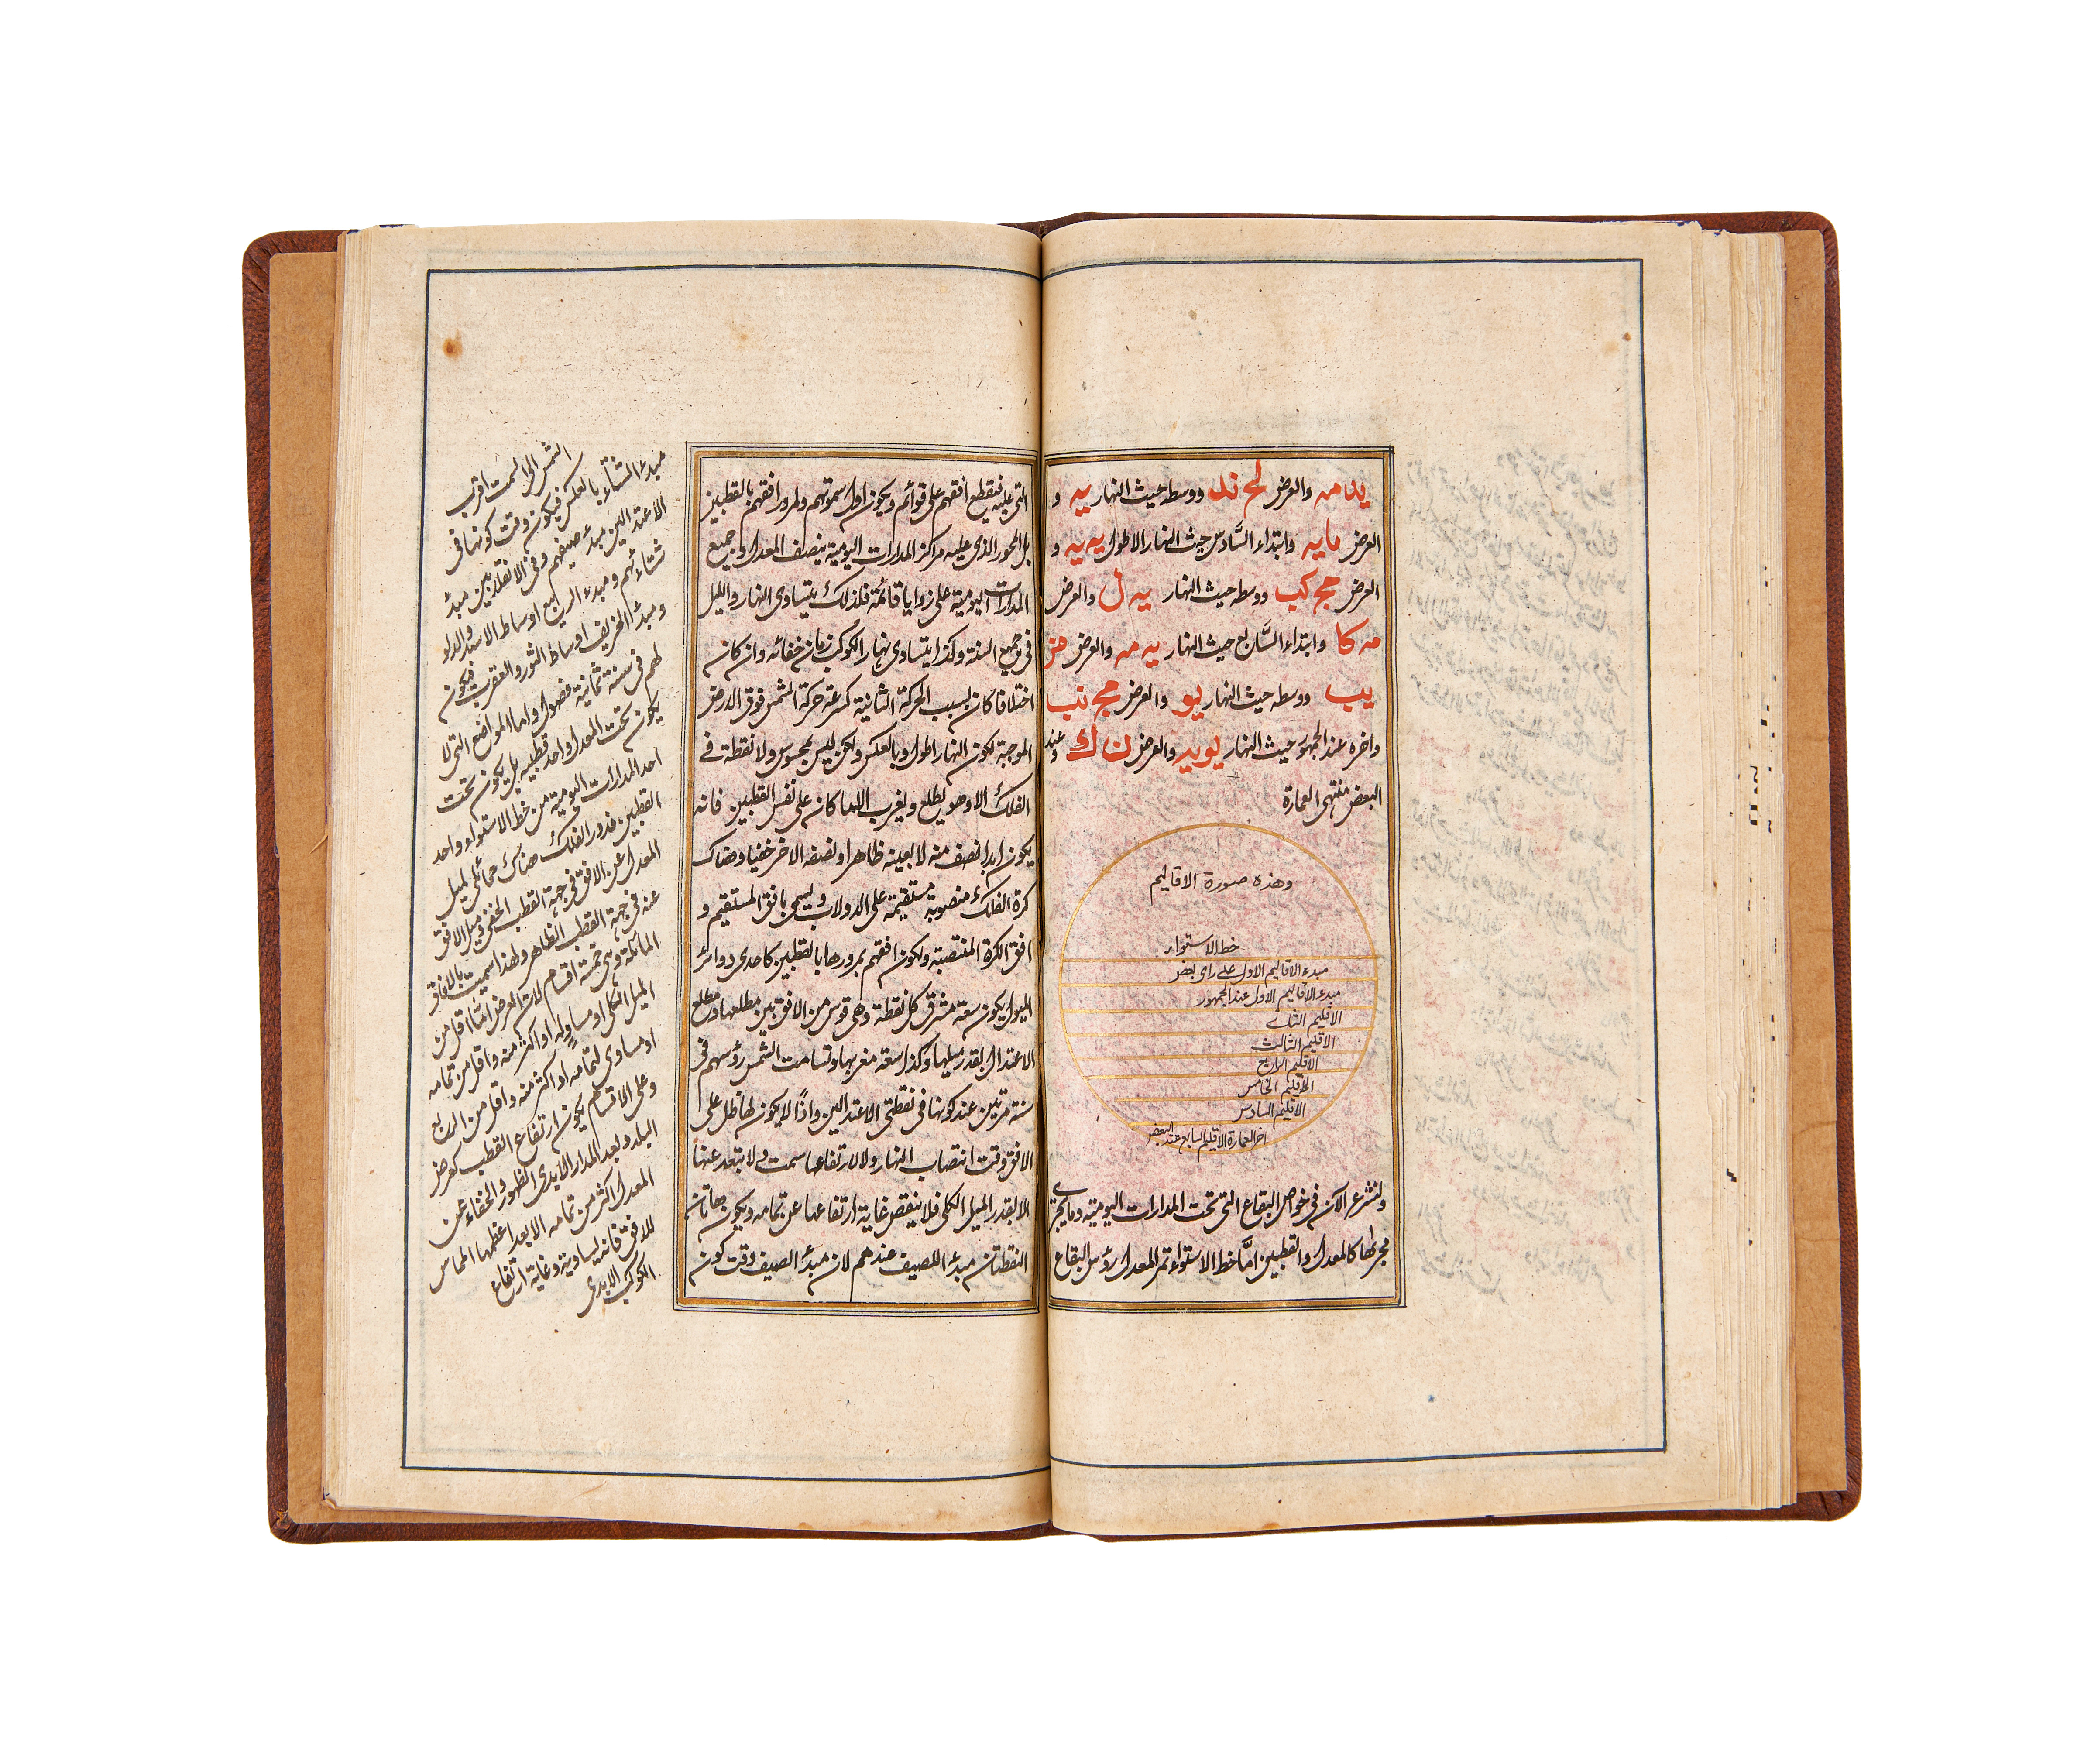 يد مه والعرض لح ند ووسطه حيث النهار يه و
العرض ما يه وابتداء السَّادس حيث النهار الاطول يه يه و
العرض مج كب ووسطه حيث النهار يه ل والعرض
مه كا وابتداء السَّابع حيث النهار يه مه والعرض مز
يب ووسطه حيث النهار يو والعرض مح نب
واخره عند الجمهور حيث النهار يو يد والعرض ن ك وعند
البعض منتهى العمارة
وهذه صورة الاقاليم
خط الاستواء
مبدء الاقاليم الاول على راى بعض
مبدء الاقاليم الاول عند الجمهور
الاقليم الثانے
الاقليم الثالث
الاقليم الرابع
الاقليم الخامس
الاقليم السادس
اخر العمارة الاقليم السابع عند البعض
ولنشرع الآن فى خواص البقاع التى تحت المدارات اليومية وما يجرى
مجراها كالمعدل والقطبين امَّا خط الاستواء تمر المعدل رؤس البقاع
التى عليه فيقطع افقهم على قوائم ويكون اول سموتهم ولمرور افقهم بالقطبين
بل المحور الذى عليه مراكز المدارات اليومية ينصف المعدل وجميع
المدارات اليومية على زوايا قائمة فلذلك يتساوى النهار والليل
فى جميع السنة وكذا يتساوى نهار الكوكب زمان خفائه وان كان
اختلافا كان بسبب الحركة الثانية كسرعة حركة الشمس فوق الارض
الموجبة لكون النهار اطول وبالعكس ولكن ليس بمحسوس ولا نقطة فے
الفلك الا وهو يطلع ويغرب الا ما كان على نفس القطبين فانه
يكون ابدا نصف منه لا بعينه ظاهرا ونصفه الاخر خفيا وهناك
كرة الفلك منصوبة مستقيمة على الدولاب ويسمى بافق المستقيم و
افق الكرة المنتصبة ولكون افقهم بمرورها بالقطبين كاحدى دوائر
الميول يكون سعة مشرق كل نقطة وهى قوس من الافق بين مطلعها ومطلع
الاعتدال بقدر ميلها وكذا سعة مغربها وتسامت الشمس رؤسهم فى
سنة مرتين عند كونها فى نقطتى الاعتدالين واذًا لا يكون لها ظل على
الافق وقت انتصاب النهار ولا لارتفاعها سمت ولا بتعد عنها
الا بقدر الميل الكلى فلا ينقص غاية ارتفاعها عن تمامه ويكون هاتان
النقطتان مبدأ الصيف عندهم لان مبدأ الصيف وقت كون
الشمس الى السمت اقرب
مبدء الشتاء بالعكس فيكون وقت كونها فى
الاعتدالين مبدء صيفهم وفى الانقلابين مبدأ
شتائهم ومبدء الربيع اوساط الاسد والدلو
ومبدأ الخريف اوساط الثور والعقرب فيكون
لهم فى سنة ثمانية فصول واما المواضع التى لا
يكون تحت المعدل واحد قطبيه بل يكون تحت
احد المدارات اليومية من خط الاستواء واحد
القطبين فدور الفلك هناك حمائلى لميل
المعدل عن الافق فى جهة القطب الخفى وميل الافق
عنه فى جهة القطب الظاهر ولهذا سميت بالافاق
المائلة وهى خمسة اقسام لان العرض امَّا اقل من
الميل الكلى او مساوٍ له او اكثر منه واقل من تمامه
او مساوى لتمامه او اكثر منه واقل من الربع
وعلى الاقسام يكون ارتفاع القطب كعرض
البلد وبعد المدار الابدى الظهور والخفاء عن
المعدل اكثر من تمامه الا بعد اعظمها المماس
للافق فانه يساويه وغاية ارتفاع
الكوكب الابدى